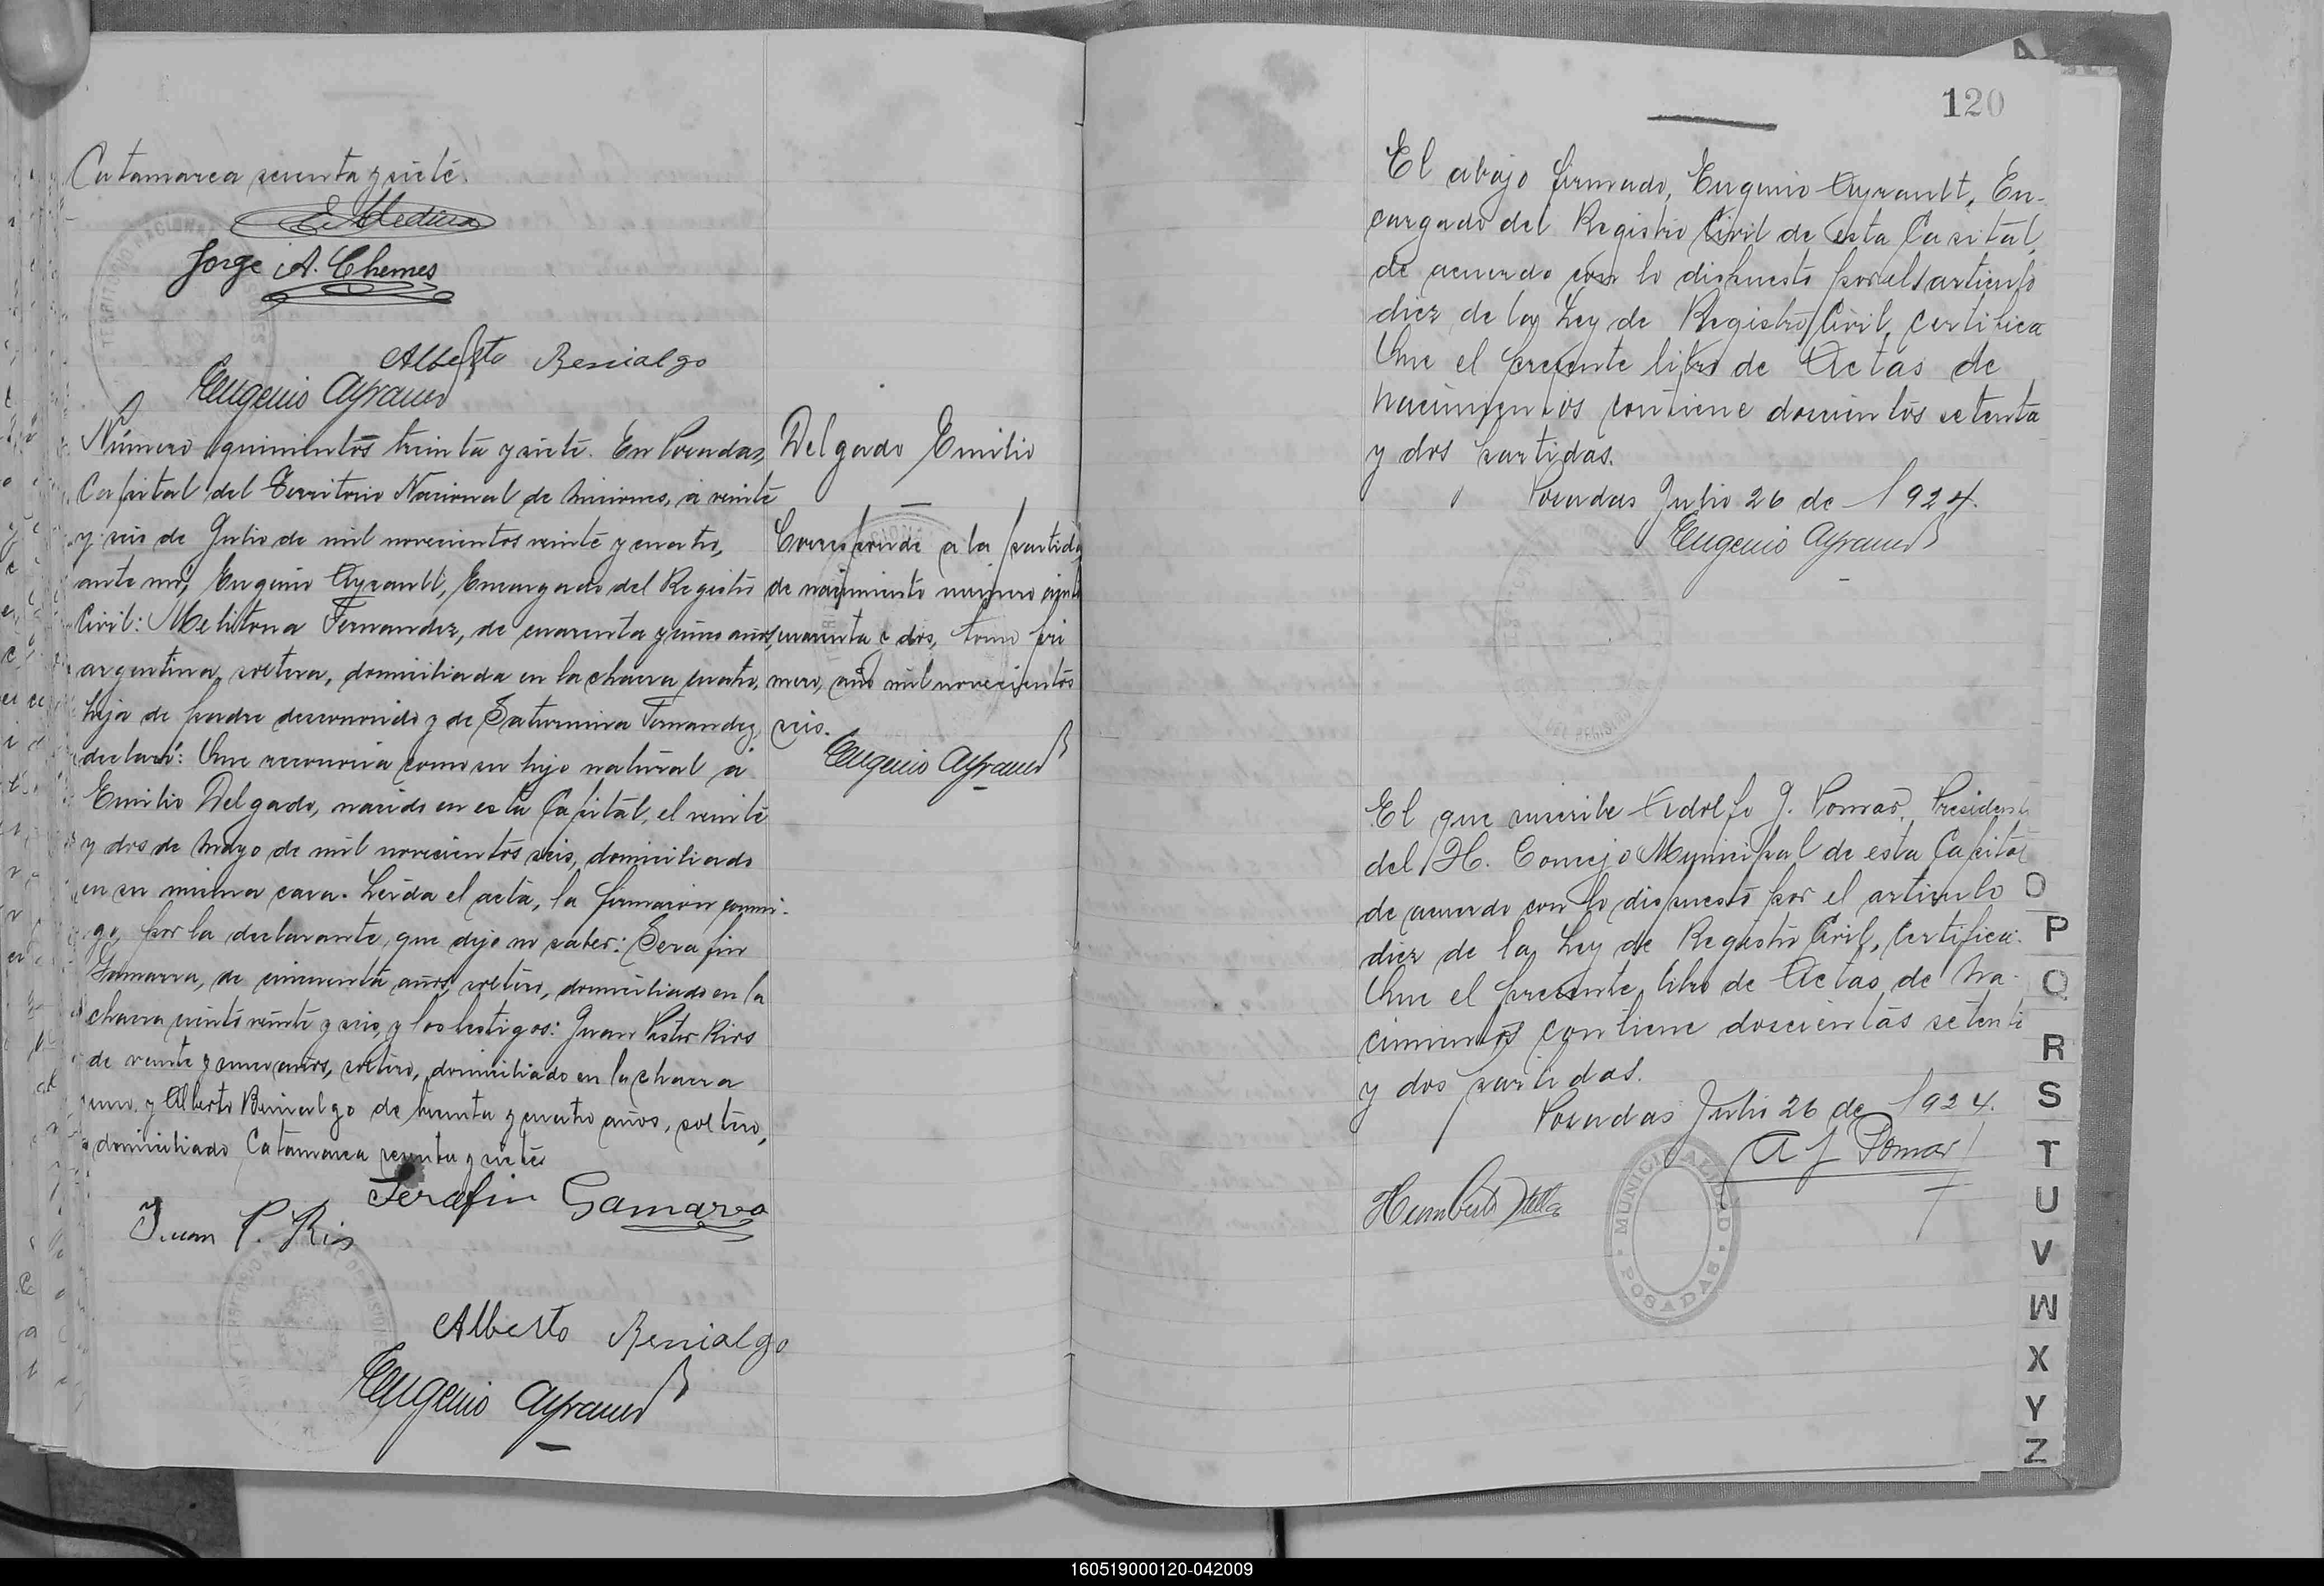 Catamarca sesenta y siete.
E. Medina
Jorge A. Chemes
Alberto Benialgo
Eugenio Ayrault
Número quinientos treinta y siete. En Posadas,
Capital del Territorio Nacional de Misiones, a veinte
y seis de Julio de mil novecientos veinte y cuatro,
ante mí, Eugenio Ayrault, Encargado del Registro
Civil: Melitona Fernandez, de cuarenta y cinco años,
argentina, soltera, domiciliada en la chacra cuatro,
hija de padre desconocido y de Saturnina Fernandez,
declaró: Que reconocia como su hijo natural a
Emilio Delgado, nacido en esta Capital, el veinte
y dos de Mayo de mil novecientos seis, domiciliado
en su misma casa. Leida el acta, la firmaron conmi-
go, por la declarante, que dijo no saber: Serafin
Gamarra, de cincuenta años, soltero, domiciliado en la
chacra ciento veinte y seis, y los testigos: Juan Pastor Rios
de veinte y años, soltero, domiciliado en la chacra
uno. y Alberto Benialgo de treinta y cuatro años, soltero,
domiciliado Catamarca sesenta y siete
Serafin Gamarra
Juan P. Rios
Alberto Benialgo
Eugenio Ayrault
Delgado Emilio
Corresponde a la partida
de nacimiento número ciento
cuarenta y dos, tomo pri
mero, año mil novecientos
seis.
Eugenio Ayrault
120
El abajo firmado, Eugenio Ayrault, En-
cargado del Registro Civil de esta Capital,
de acuerdo con lo dispuesto por el articulo
diez de la Ley de Registro Civil, certifica
Que el presente libro de Actas de
Nacimientos contiene doscientos setenta
y dos partidas.
Posadas Julio 26 de 1924.
Eugenio Ayrault
El que suscribe Adolfo J. Pomar, Presidente
del H. Concejo Municipal de esta Capital
de acuerdo con lo dispuesto por el articulo
diez de la Ley de Registro Civil, Certifica:
Que el presente libro de Actas de Na-
cimientos contiene doscientas setenta
y dos partidas.
Posadas Julio 26 de 1924.
A J Pomar
Humberto
MUNICIPALIDAD
POSADAS
O
P
Q
R
S
T
U
V
W
X
Y
Z
160519000120-042009